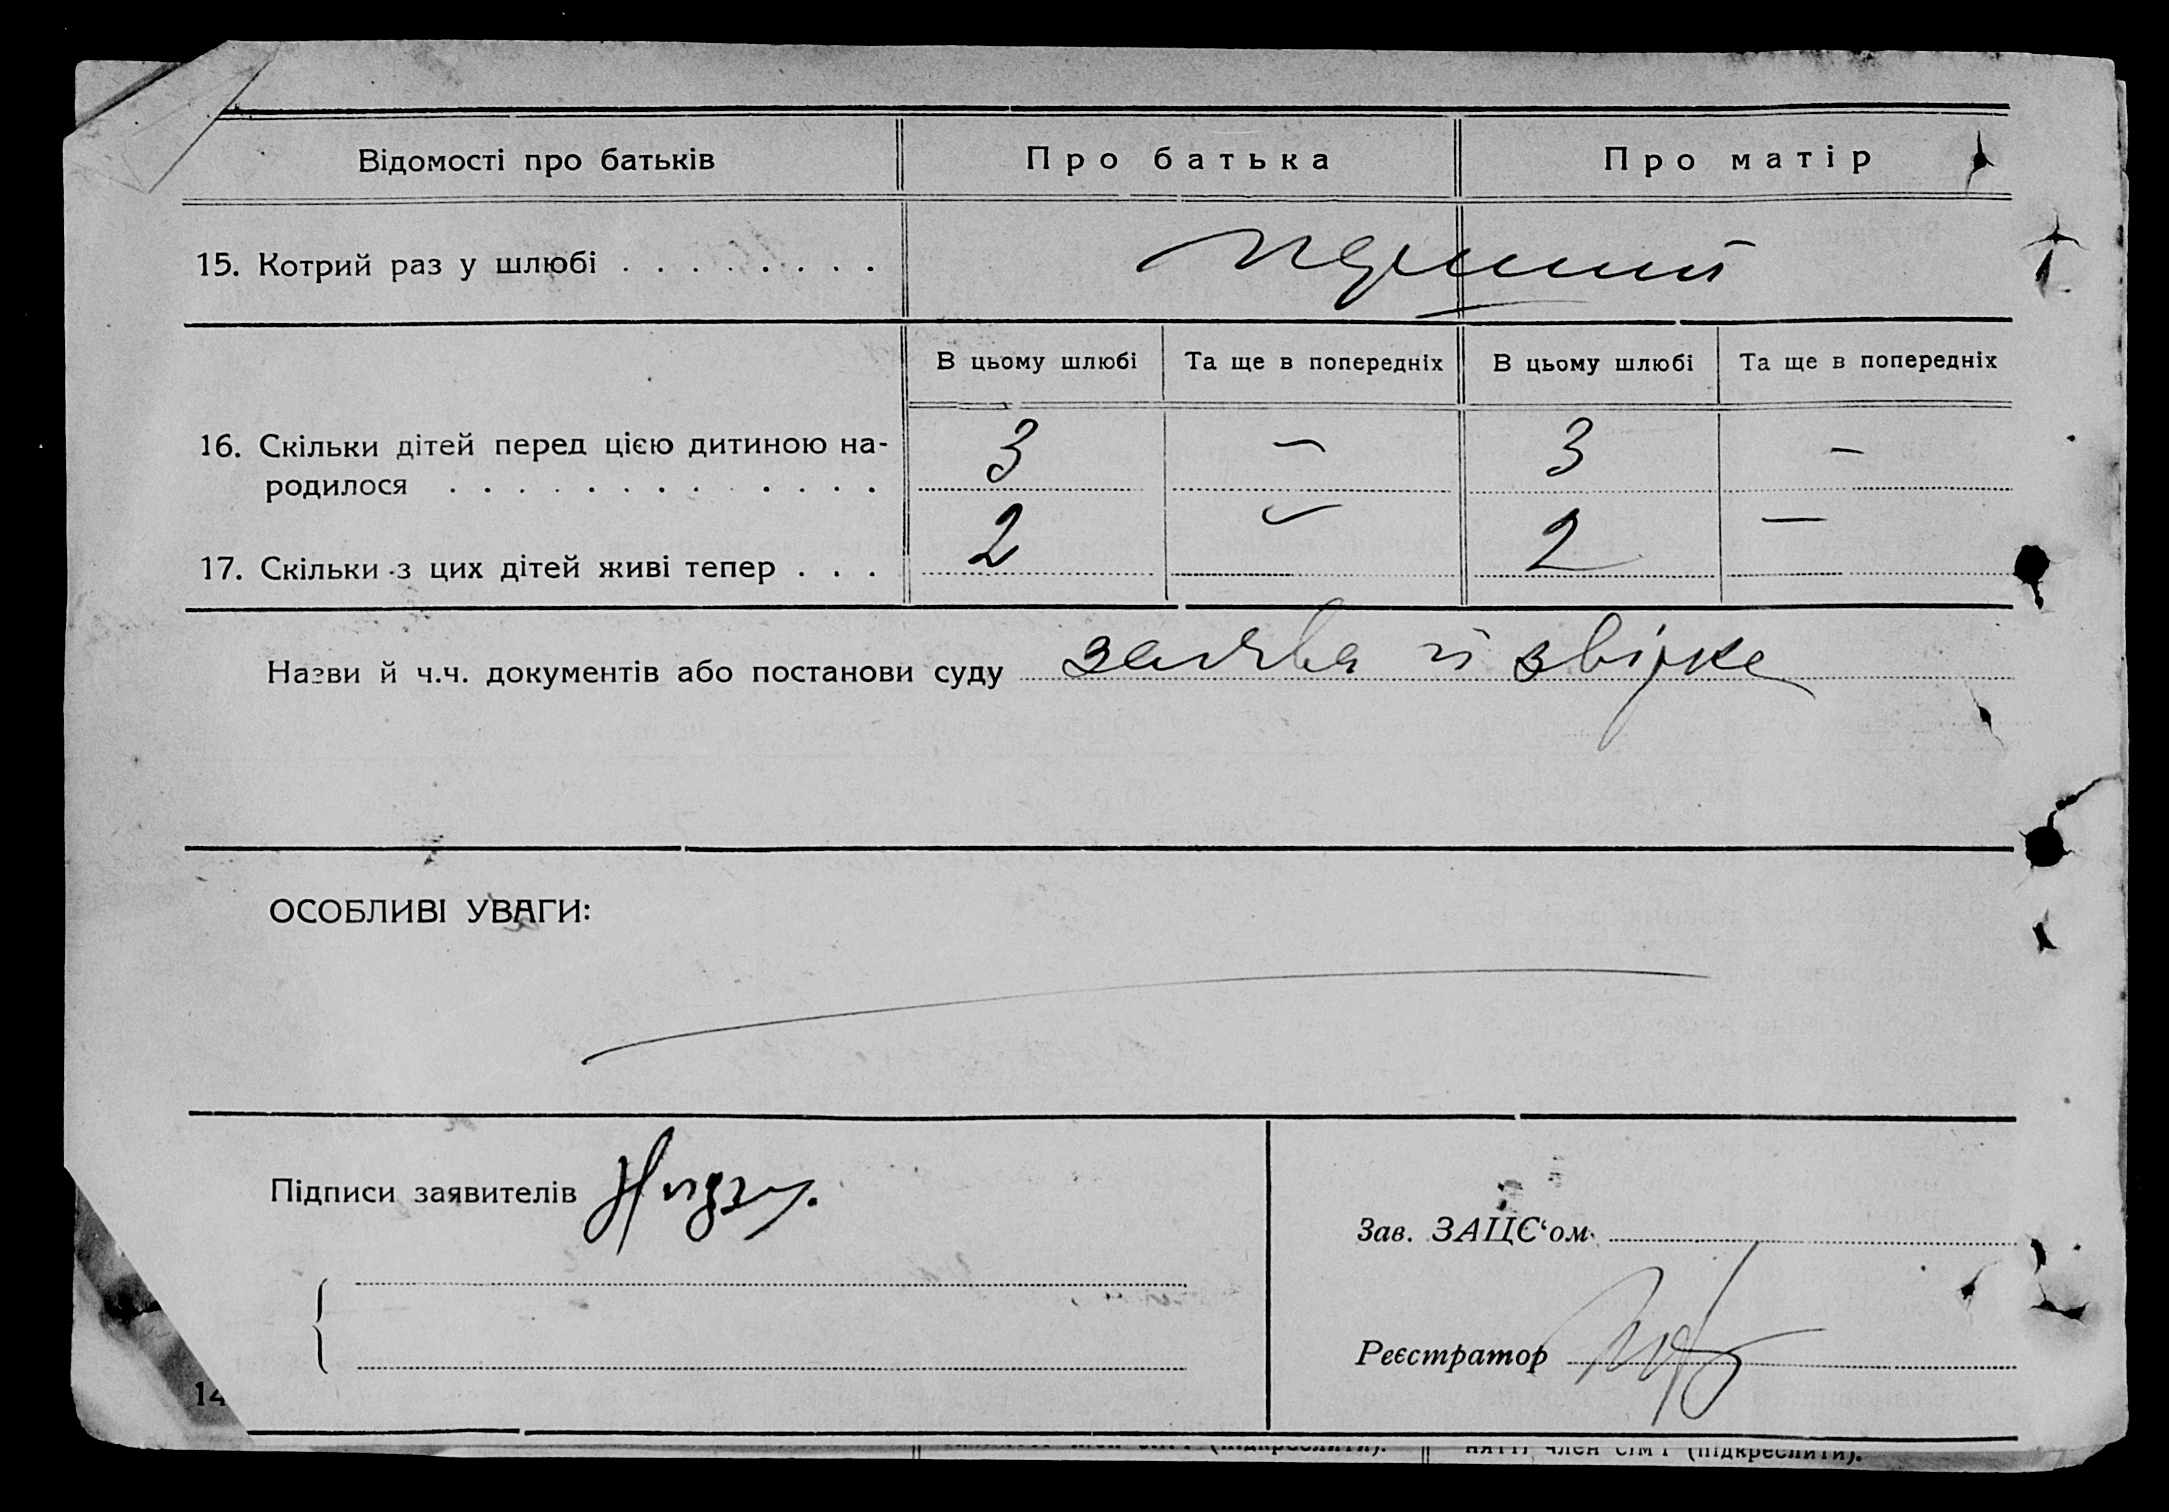 Відомості про батьків Про батька Про матір
15. Котрий раз у шлюбі . . . . . . . . перший
В цьому шлюбі Та ще в попередніх В цьому шлюбі Та ще в попередніх
16. Скільки дітей перед цією дитиною на-
родилося . . . . . . . . . . . . . 3 – 3 –
17. Скільки з цих дітей живі тепер . . . 2 – 2 –
Назви й ч.ч. документів або постанови суду заява й звірка
ОСОБЛИВІ УВАГИ:
Підписи заявителів
Зав. ЗАЦС‘ом
Реєстратор
14
(підкреслити). няті член сім'ї (підкреслити).